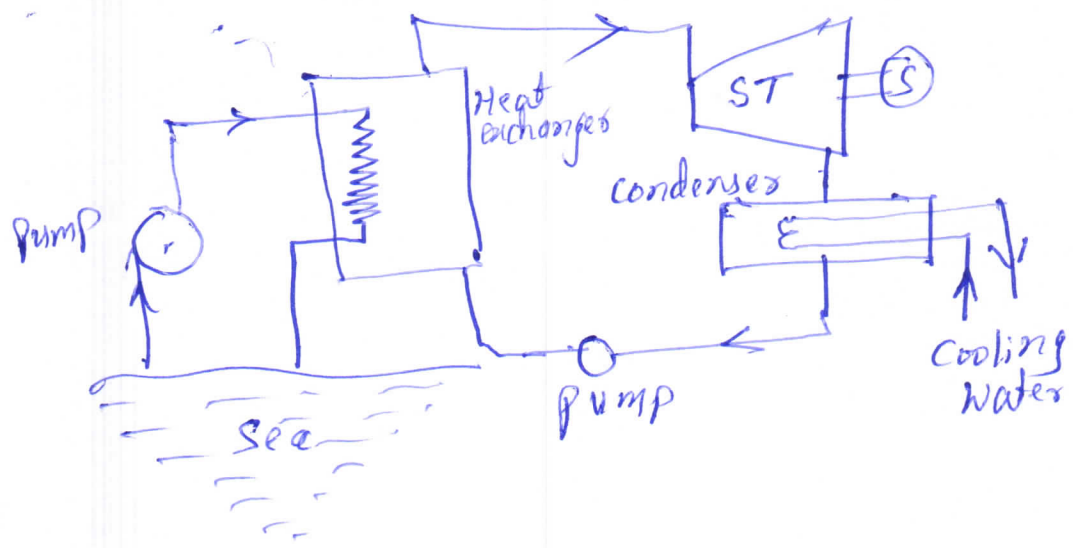 Heat
exchanger
ST
S
Condenser
Pump
r
Cooling
Water
Pump
Sea